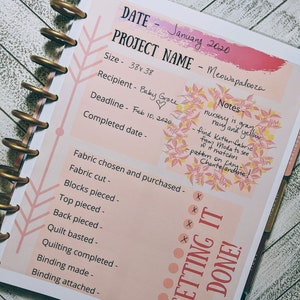 DATE - January 2020
PROJECT NAME - Meowapalooza
Size - 38x38
Recipient - Baby Grace
Deadline - Feb 10, 2020
Completed date -
Notes
nursery is gray,
navy and yellow
Fabric chosen and purchased -
Fabric cut -
Blocks pieced -
Top pieced -
Back pieced -
Quilt basted -
Quilting completed -
Binding made -
Binding attached -
GETTING IT
DONE!